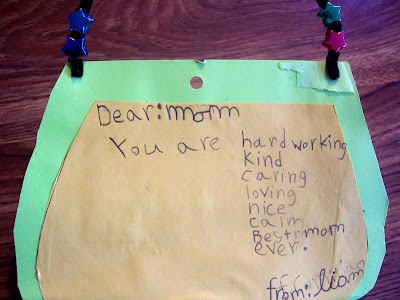 Dear:mom
You are hardworking
kind
caring
loving
nice
calm
Best mom
ever.
from: liam